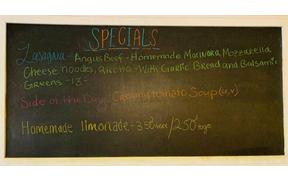 SPECIALS
Lasagna - Angus Beef - Homemade Marinara, Mozzarella
Cheese noodles, Ricotta - With Garlic Bread and Balsamic
Greens - 13-
Side of the Day - Creamy tomato Soup (u,v)
Homemade limonade - 3.50 / 2.50 togo